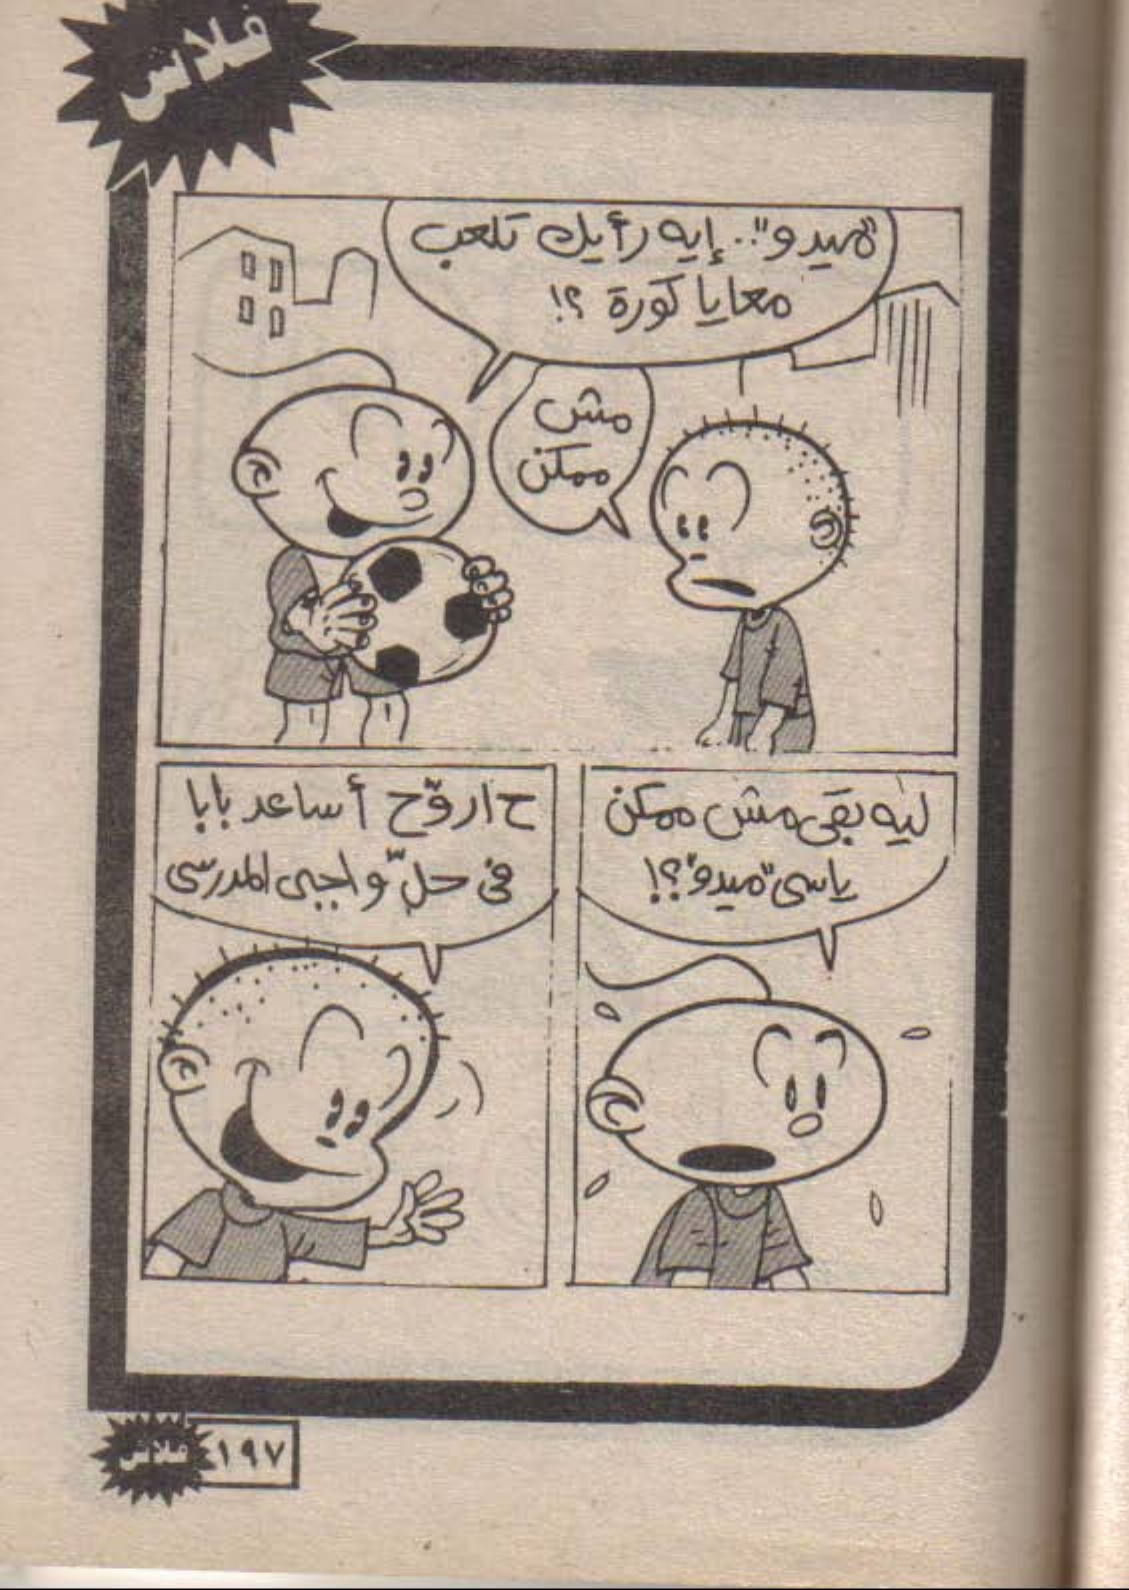 فلاش
"ميدو".. إيه رأيك تلعب
معايا كورة ؟!
مش
ممكن
ليه بقى مش ممكن
ياسى "ميدو"؟!
ح اروّح أساعد بابا
فى حلّ واجبى المدرسى
فلاش
١٩٧